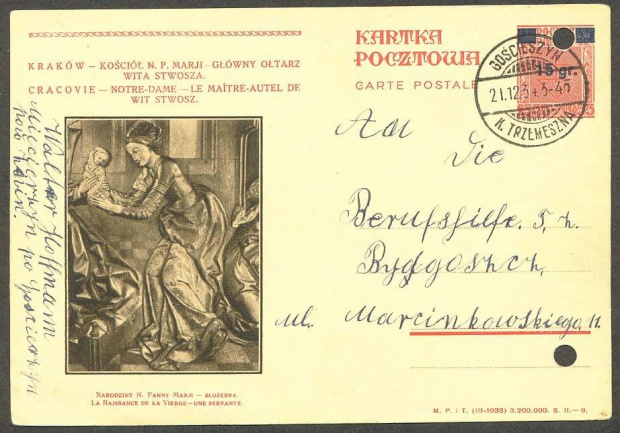 KRAKÓW — KOŚCIÓŁ N. P. MARJI — GŁÓWNY OŁTARZ
WITA STWOSZA.
CRACOVIE — NOTRE-DAME — LE MAÎTRE-AUTEL DE
WIT STWOSZ.
KARTKA
POCZTOWA
CARTE POSTALE
15 gr.
GOŚCIESZYN
21.12.34-3-45
K. TRZEMESZNA
Walter Hoffmann
pow. Żnin.
An
Die
Berufshilfe. T. z.
Bydgoszcz,
ul. Marcinkowskiego, 11.
NARODZINY N. PANNY MARJI — SŁUŻEBNA.
LA NAISSANCE DE LA VIERGE — UNE SERVANTE.
M. P. i T. (III-1933) 3.200.000. S. II.—9.